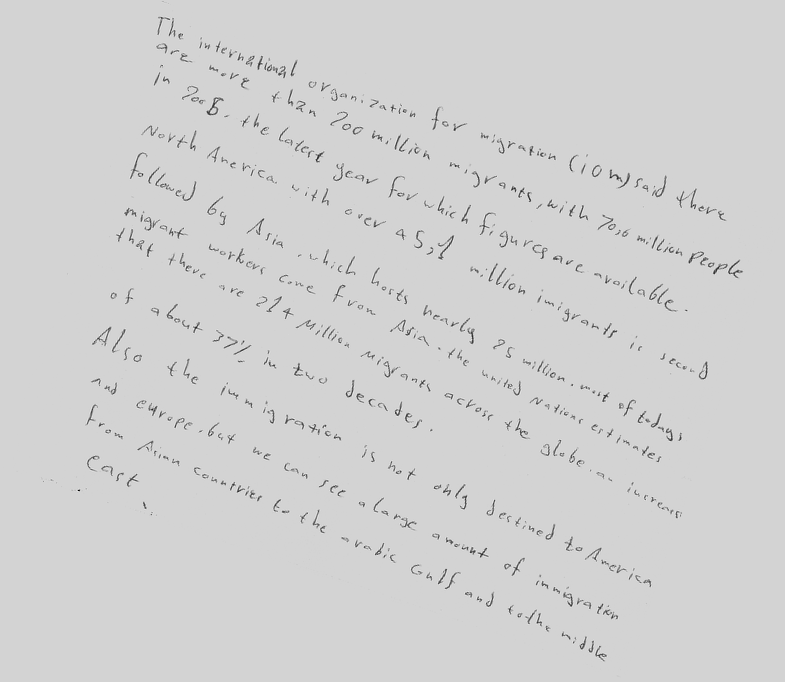 The international organization for migration (iom) said there
are more than 200 million migrants, with 70,6 million people
in 2005. the latest year for which figures are available.
North America with over 45,1 million imigrants is second
followed by Asia, which hosts nearly 25 million. most of todays
migrant workers come from Asia. the united Nations estimates
that there are 214 Million Migrants across the globe. an increas
of about 37% in two decades.
Also the immigration is not only destined to America
and europe. but we can see a large amount of immigration
from Asian countries to the arabic Gulf and to the middle
East